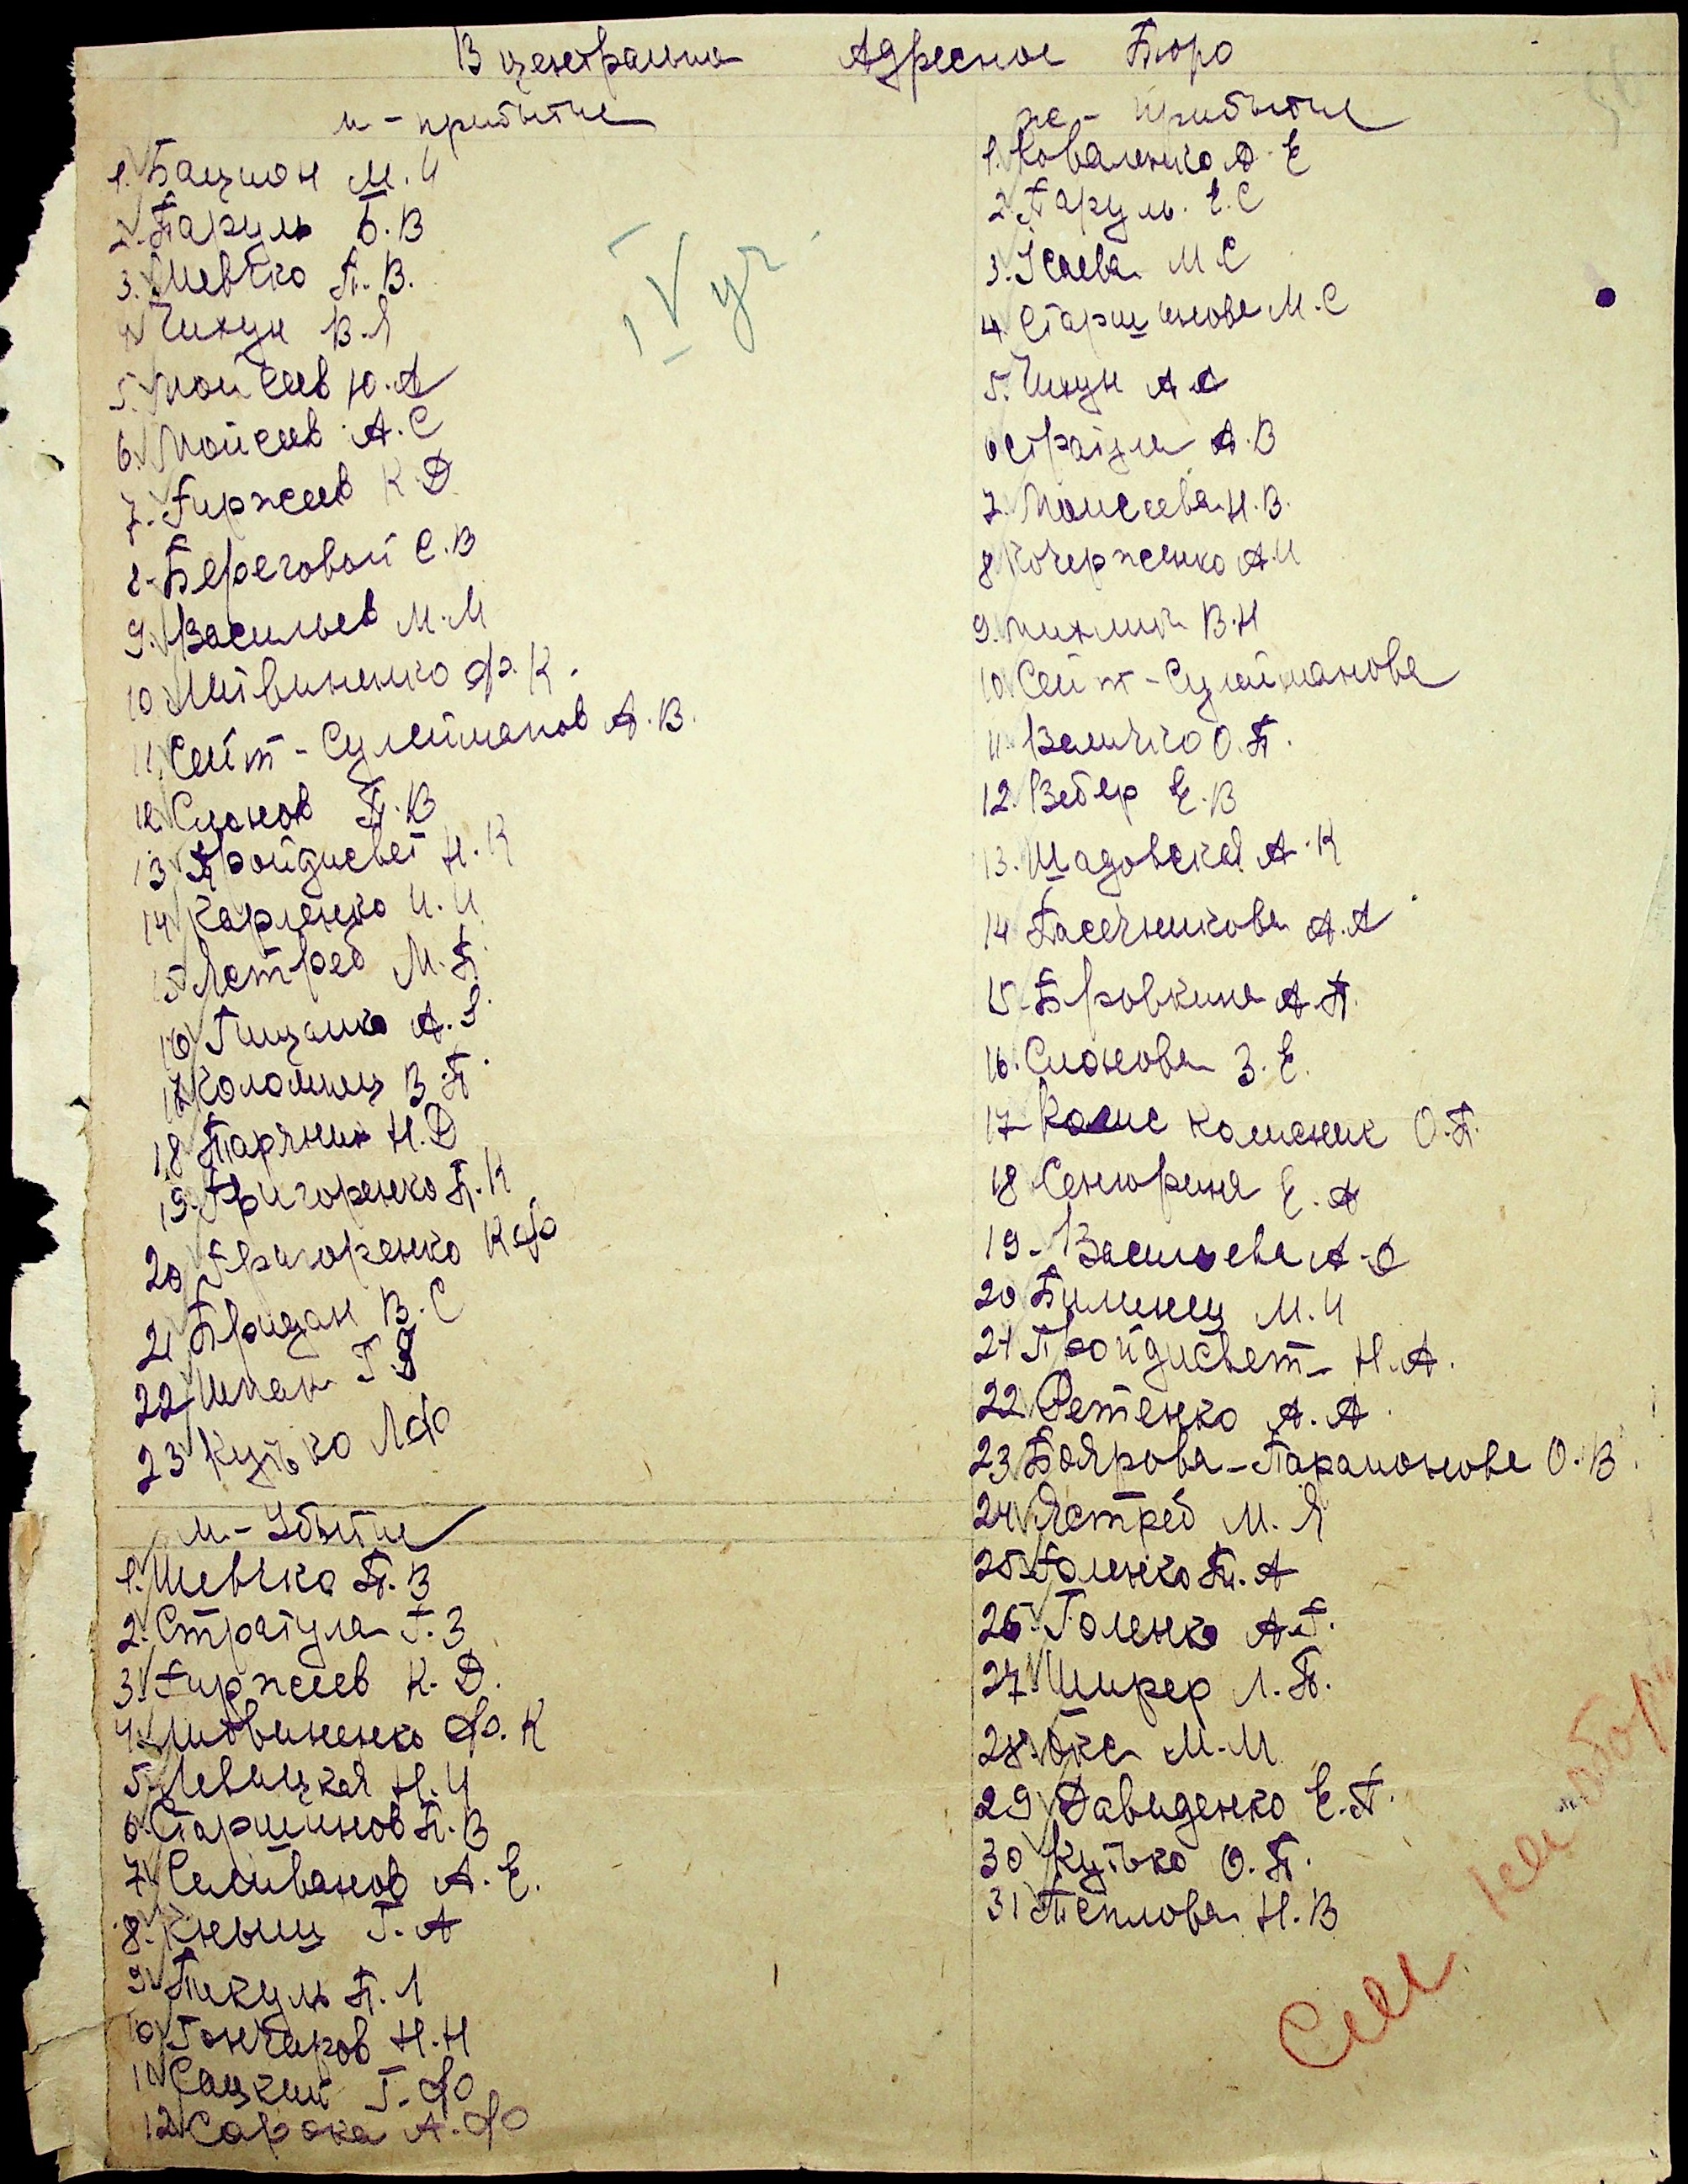 В центрально Адресное Бюро
м - прибытие
1. Бацион М.И
2. Паруль Б.В
3. Шевчко П.В.
4 Чихун В.Я
5. Мойсеев Ю.А
6. Мойсеев А.С
7. Гиржеев К.Д
8. Береговой С.В
9. Васильев М.М
10 Литвиненко Ф.К.
11. Сейт - Сулейманов А.В.
12. Слонов П.В
13 Пройдисвет Н.К
14 Карленко И.И
15 Ястреб М.П.
16 Гищенко А.
17 Коломиец В.П.
18 Парчник Н.Д
19. Григоренко П.К
20 Григоренко К.Ф
21 Брицан В.С
22 Шпак Г.
23 Кулько Л.Ф
м - Убытие
1. Шевчко П.В
2. Стратула Г.З
3. Гиржеев К.Д.
4. Литвиненко Ф.К
5. Левицкая Н.И
6. Старшинов П.В
7. Селиванов А.Е.
8. Кныш Г.А
9. Пикуль П.Л
10 Гончаров Н.Н
11 Сацкий Г.Ф
12 Сорока А.Ф
IV уч
же - прибытие
1. Коваленко А.Е
2. Паруль. Е.С
3. Исаева М.С
4. Старшинова М.С
5. Чихун А.А
6 Стратула А.В
7. Моисеева Н.В.
8 Кочерженко А.И
9. В.Н
10 Сейт - Сулейманова
11. Величко О.П.
12. Вебер Е.В
13. Шадовская А.К
14 Пасечникова А.А
15. Бровкина А.П.
16. Слонова З.Е.
17 Колисник О.П.
18 Сенюрина Е.А
19 - Васильева А.
20 Билинец М.И
21 Пройдисвет Н.А.
22 Фетенко А.А.
23 Боярова - Парамонова О.В.
24 Ястреб М.Я
25. Голенко П.А
26. Голенко А.Г.
27. Ширер Л.П.
28. М.М
29 Давиденко Е.П.
30 Кулько О.П.
31 Теплова Н.В